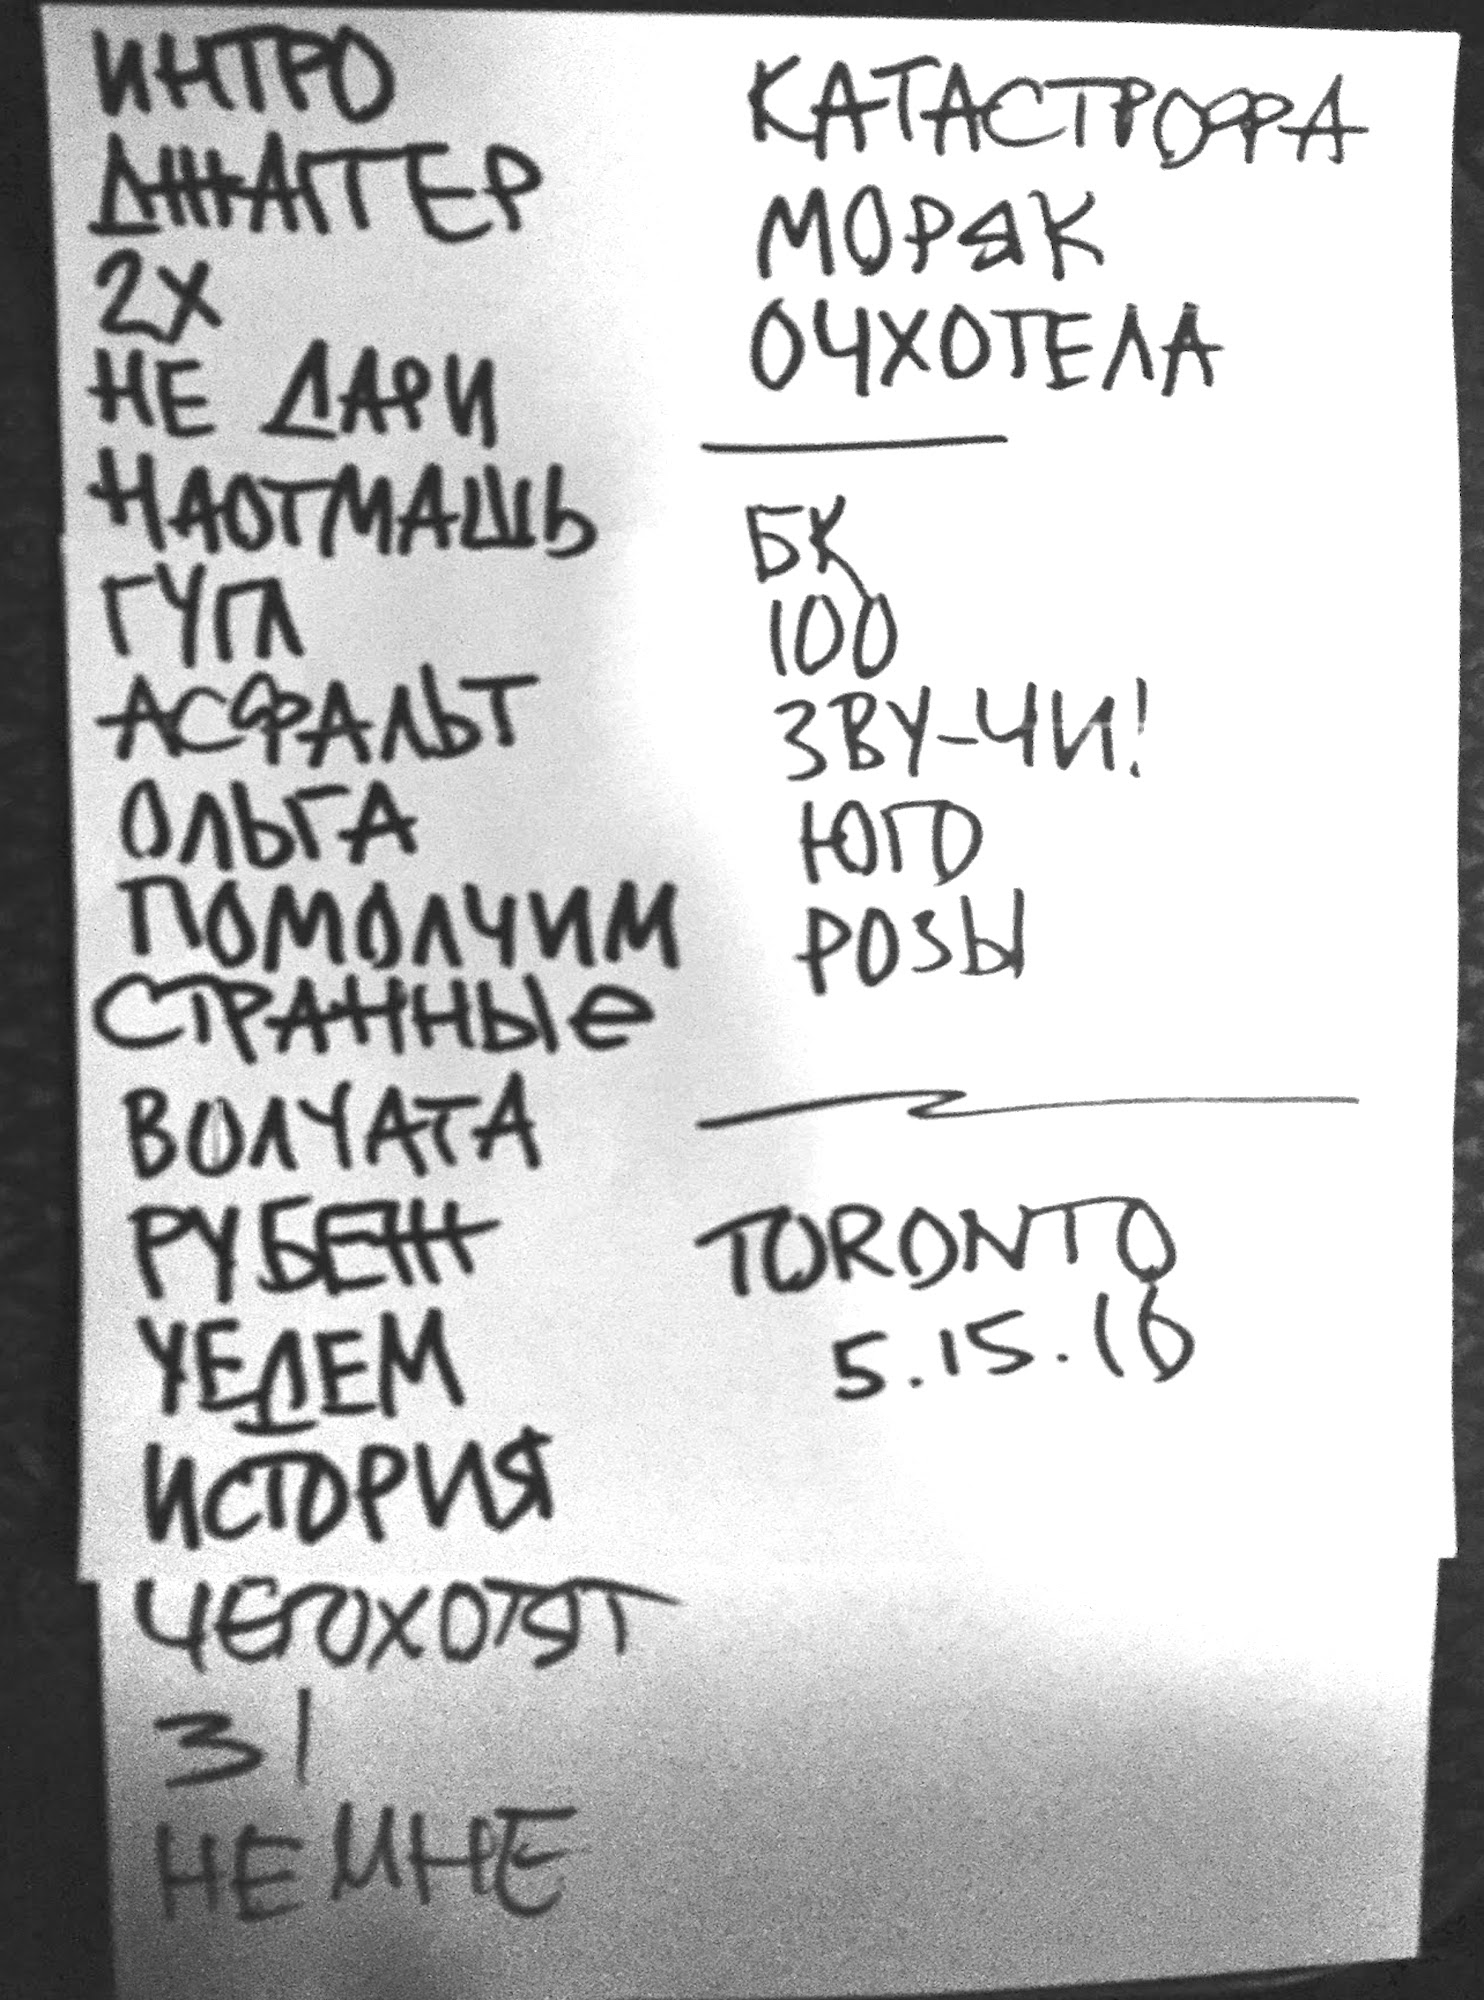 ИНТРО
ДЖАГГЕР
2Х
НЕ ДАРИ
НАОТМАШЬ
ГУГЛ
АСФАЛЬТ
ОЛЬГА
ПОМОЛЧИМ
СТРАННЫЕ
ВОЛЧАТА
РУБЕЖ
УЕДЕМ
ИСТОРИЯ
ЧЕГОХОТЯТ
31
НЕ МНЕ
КАТАСТРОФА
МОРЯК
ОЧХОТЕЛА
БК
100
ЗВУ-ЧИ!
ЮГО
РОЗЫ
TORONTO
5.15.16